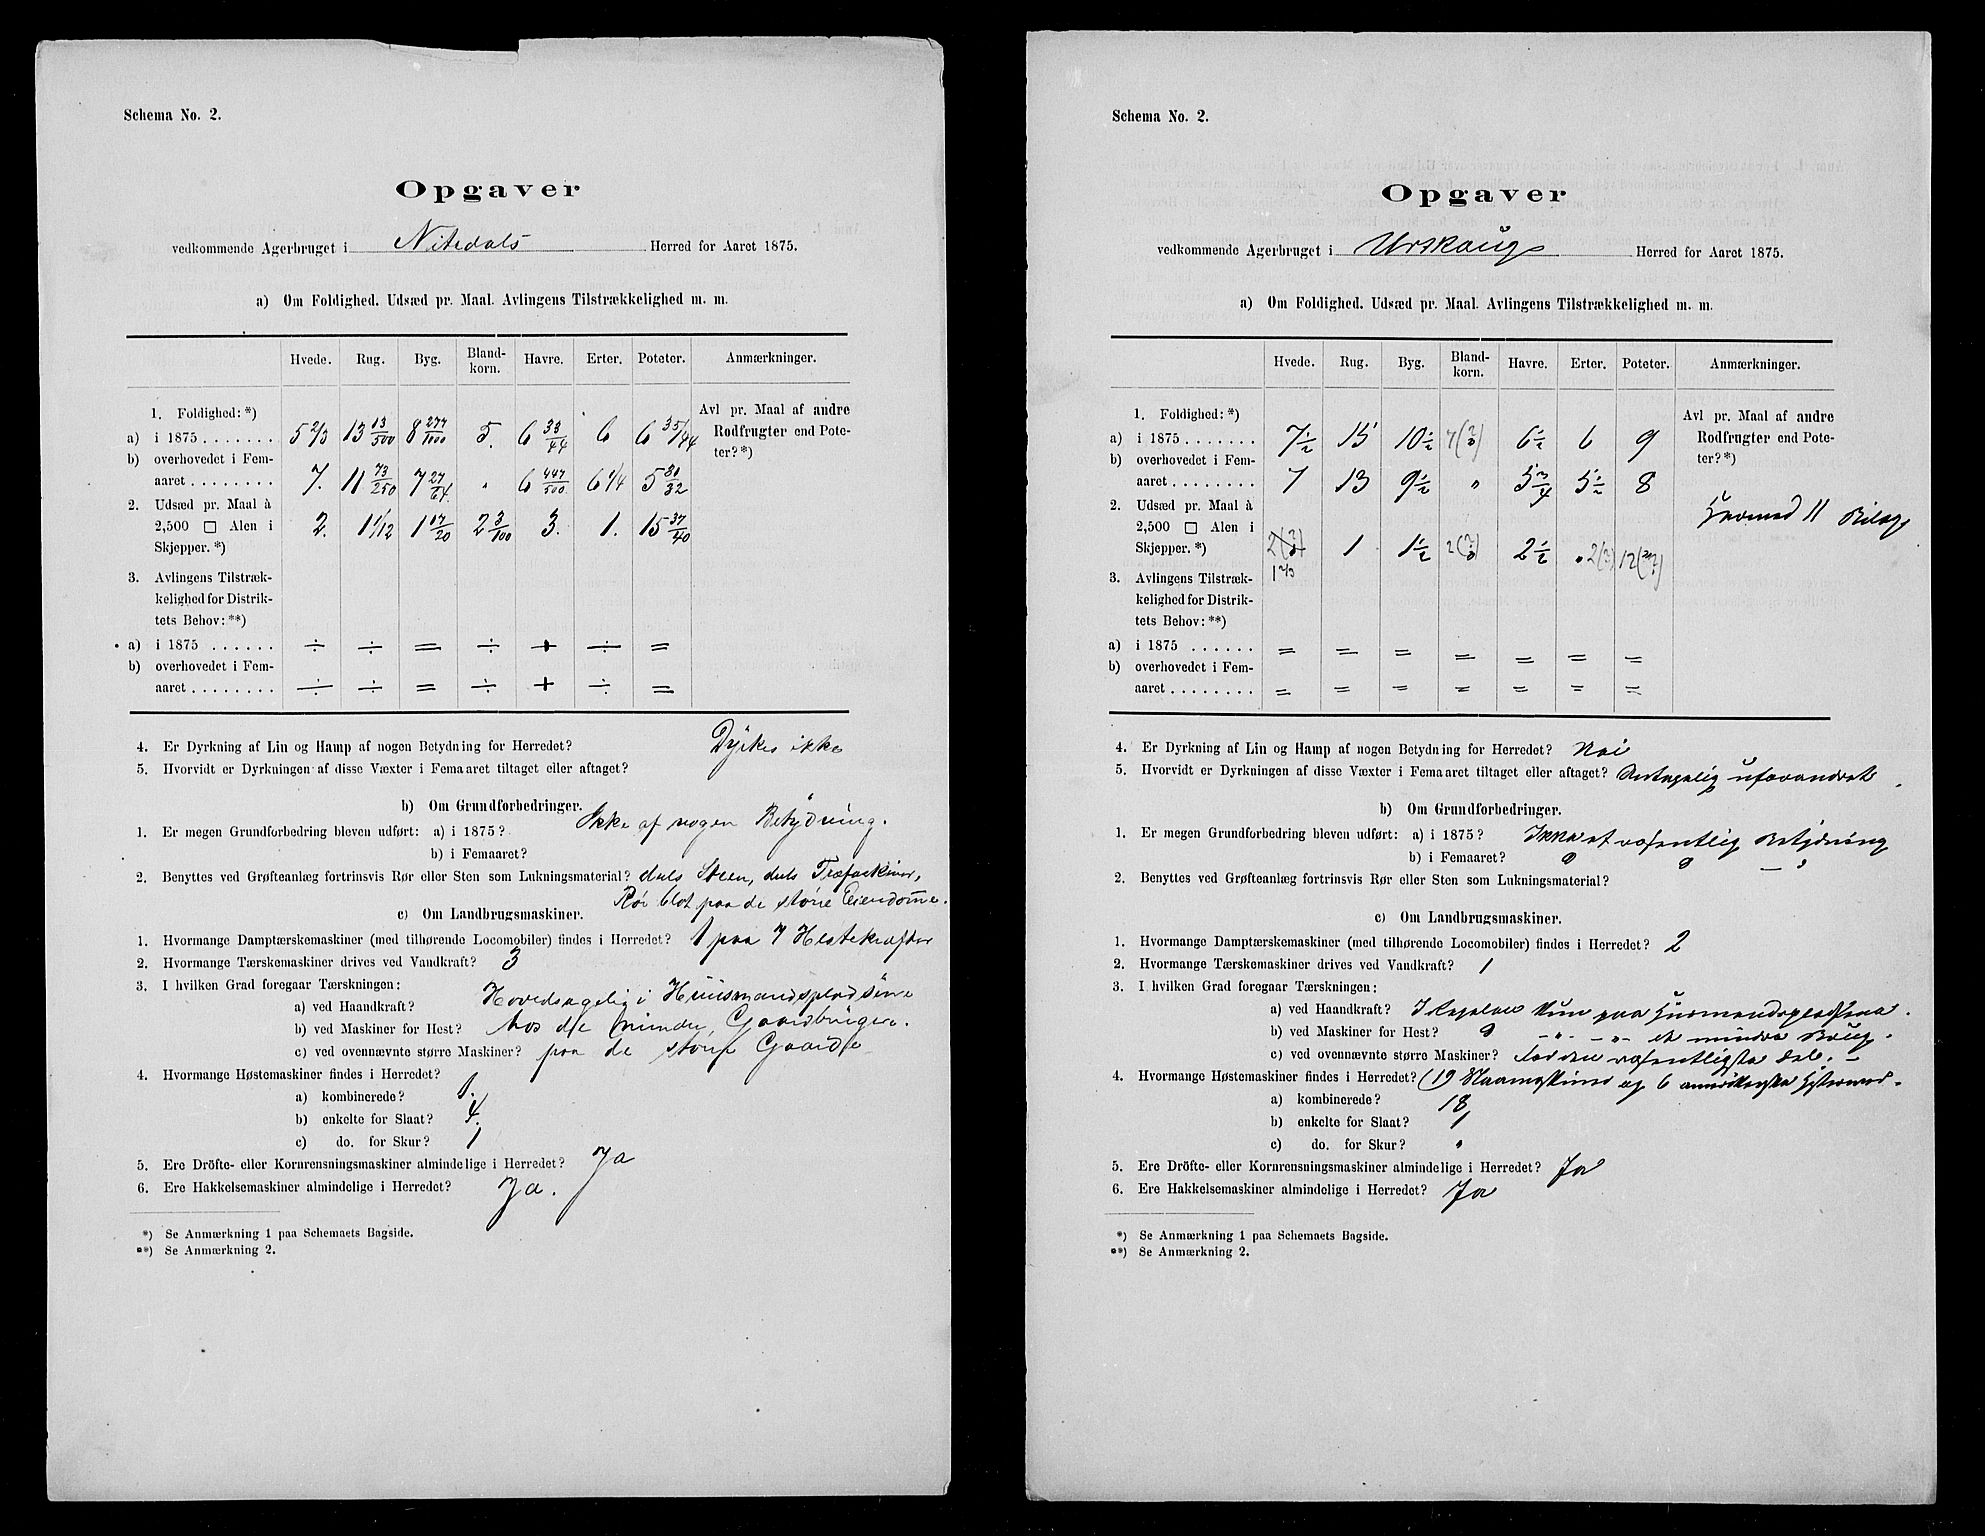 Schema No. 2.
Opgaver
vedkommende Agerbruget i Nitedals Herred for Aaret 1875.
a) Om Foldighed. Udsæd pr. Maal. Avlingens Tilstrækkelighed m. m.
Hvede. Rug. Byg. Bland-korn. Havre. Erter. Poteter. Anmærkninger.
1. Foldighed: *) Avl pr. Maal af andre
a) i 1875 . . . . . . . 5 2/3 13 13/500 8 277/1000 5. 6 33/44 6 6 35/44 Rodfrugter end Pote-
b) overhovedet i Fem- ter? *)
aaret . . . . . . . . 7. 11 73/250 7 27/64 " 6 447/500 6 1/4 5 30/32
2. Udsæd pr. Maal à
2,500 □ Alen i 2. 1 1/12 1 17/20 2 3/100 3. 1. 15 37/40
Skjepper. *)
3. Avlingens Tilstræk-
kelighed for Distrik-
tets Behov: **)
a) i 1875 . . . . . . ÷ ÷ = ÷ + ÷ =
b) overhovedet i Fem-
aaret . . . . . . . . ÷ ÷ = ÷ + ÷ =
4. Er Dyrkning af Lin og Hamp af nogen Betydning for Herredet? Dyrkes ikke
5. Hvorvidt er Dyrkningen af disse Væxter i Femaaret tiltaget eller aftaget?
b) Om Grundforbedringer.
1. Er megen Grundforbedring bleven udført: a) i 1875? Ikke af nogen Betydning.
b) i Femaaret?
2. Benyttes ved Grøfteanlæg fortrinsvis Rør eller Sten som Lukningsmaterial? dels Steen, dels
Rør blot paa de større Eiendomme.
c) Om Landbrugsmaskiner.
1. Hvormange Damptærskemaskiner (med tilhørende Locomobiler) findes i Herredet? 1 paa 7 Hestekræfter
2. Hvormange Tærskemaskiner drives ved Vandkraft? 3
3. I hvilken Grad foregaar Tærskningen:
a) ved Haandkraft? Hovedsagelig i Huusmandspladsene
b) ved Maskiner for Hest? hos de mindre Gaardbrugere.
c) ved ovennævnte større Maskiner? paa de større Gaarde
4. Hvormange Høstemaskiner findes i Herredet?
a) kombinerede? 1.
b) enkelte for Slaat? 4.
c) do. for Skur? 1
5. Ere Dröfte- eller Kornrensningsmaskiner almindelige i Herredet? Ja
6. Ere Hakkelsemaskiner almindelige i Herredet? Ja.
*) Se Anmærkning 1 paa Schemaets Bagside.
**) Se Anmærkning 2.
Schema No. 2.
Opgaver
vedkommende Agerbruget i Urskoug Herred for Aaret 1875.
a) Om Foldighed. Udsæd pr. Maal. Avlingens Tilstrækkelighed m. m.
Hvede. Rug. Byg. Bland-korn. Havre. Erter. Poteter. Anmærkninger.
1. Foldighed: *) Avl pr. Maal af andre
a) i 1875 . . . . . . . 7 1/2 15 10 1/2 7 (?) 6 1/2 6 9 Rodfrugter end Pote-
b) overhovedet i Fem- ter? *)
aaret . . . . . . . . 7 13 9 1/2 " 5 3/4 5 1/2 8
2. Udsæd pr. Maal à Hermed 11 Bilag
2,500 □ Alen i
Skjepper. *) 2 (?) 1 1 1/2 2 (?) 2 1/2 " 2 (?)
3. Avlingens Tilstræk- 1 2/3
kelighed for Distrik-
tets Behov: **)
a) i 1875 . . . . . . = = = = = = =
b) overhovedet i Fem-
aaret . . . . . . . . = = = = = = =
4. Er Dyrkning af Lin og Hamp af nogen Betydning for Herredet? Nei
5. Hvorvidt er Dyrkningen af disse Væxter i Femaaret tiltaget eller aftaget? Antagelig uforandret.
b) Om Grundforbedringer.
1. Er megen Grundforbedring bleven udført: a) i 1875? Ikke af væsentlig Betydning
b) i Femaaret? " " — "
2. Benyttes ved Grøfteanlæg fortrinsvis Rør eller Sten som Lukningsmaterial?
c) Om Landbrugsmaskiner.
1. Hvormange Damptærskemaskiner (med tilhørende Locomobiler) findes i Herredet? 2
2. Hvormange Tærskemaskiner drives ved Vandkraft? 1
3. I hvilken Grad foregaar Tærskningen:
a) ved Haandkraft? I Regelen kun paa Husmandspladsene.
b) ved Maskiner for Hest? " -"- -"- mindre Brug.
c) ved ovennævnte større Maskiner? For den væsentligste Del. —
4. Hvormange Høstemaskiner findes i Herredet? (19 og 6 amerikanske
a) kombinerede? 18,
b) enkelte for Slaat? 1
c) do. for Skur? "
5. Ere Dröfte- eller Kornrensningsmaskiner almindelige i Herredet? Ja
6. Ere Hakkelsemaskiner almindelige i Herredet? Ja
*) Se Anmærkning 1 paa Schemaets Bagside.
**) Se Anmærkning 2.